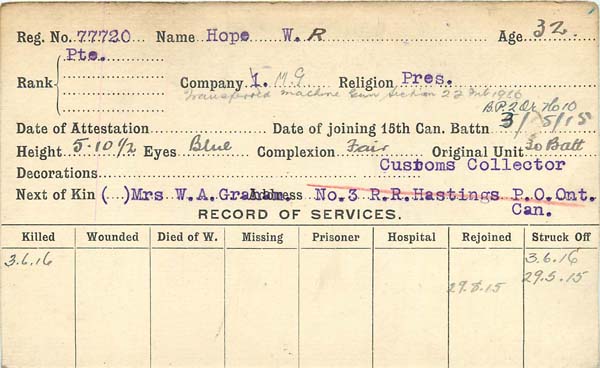 Reg. No. 77720 Name Hope W. R Age 32.
Pte.
Rank Company 1. M.G Religion Pres.
Transferred Machine Gun Section 22 Feb 1916
B.P.2 Dr. 7610
Date of Attestation Date of joining 15th Can. Battn 3/5/15
Height 5-10½ Eyes Blue Complexion Fair Original Unit 30 Batt
Decorations Customs Collector
Next of Kin ( ) Mrs W.A. Graham. Address No.3 R.R.Hastings P.O.Ont.
Can.
RECORD OF SERVICES.
Killed Wounded Died of W. Missing Prisoner Hospital Rejoined Struck Off
3.6.16 3.6.16
29.5.15
29.8.15